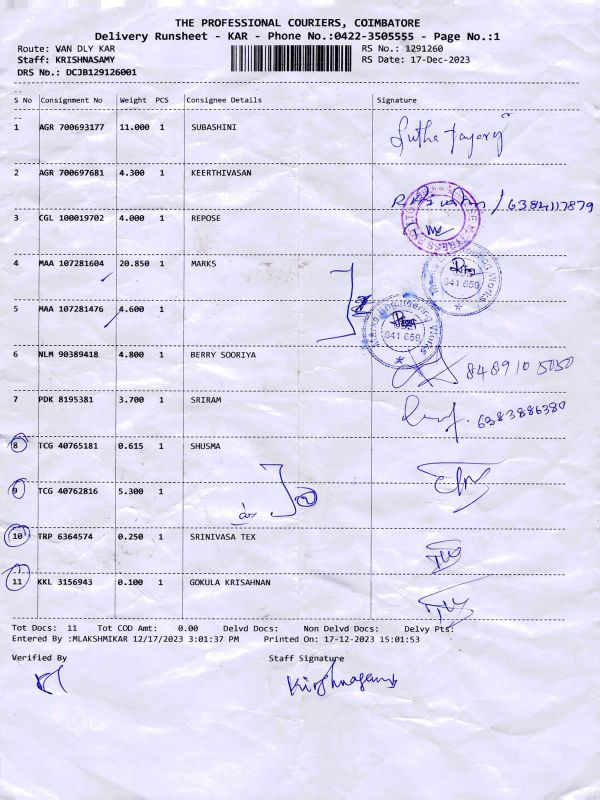 THE PROFESSIONAL COURIERS, COIMBATORE
Delivery Runsheet - KAR - Phone No.:0422-3505555 - Page No.:1
Route: VAN DLY KAR RS No.: 1291260
Staff: KRISHNASAMY RS Date: 17-Dec-2023
DRS No.: DCJB129126001
S No Consignment No Weight PCS Consignee Details Signature
1 AGR 700693177 11.000 1 SUBASHINI
2 AGR 700697681 4.300 1 KEERTHIVASAN
6384117879
3 CGL 100019702 4.000 1 REPOSE
4 MAA 107281604 20.850 1 MARKS
641 659
5 MAA 107281476 4.600 1
Marks Engineering Works
641 659
6 NLM 90389418 4.800 1 BERRY SOORIYA
8489105050
7 PDK 8195381 3.700 1 SRIRAM
6383886380
8 TCG 40765181 0.615 1 SHUSMA
9 TCG 40762816 5.300 1
2
10 TRP 6364574 0.250 1 SRINIVASA TEX
11 KKL 3156943 0.100 1 GOKULA KRISAHNAN
Tot Docs: 11 Tot COD Amt: 0.00 Delvd Docs: Non Delvd Docs: Delvy Pts:
Entered By :MLAKSHMIKAR 12/17/2023 3:01:37 PM Printed On: 17-12-2023 15:01:53
Verified By Staff Signature